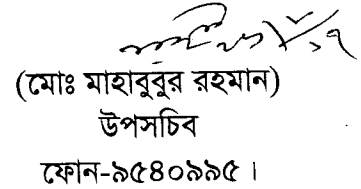 (মোঃ মাহাবুবুর রহমান)
উপসচিব
ফোন-৯৫৪০৯৯৫ ।